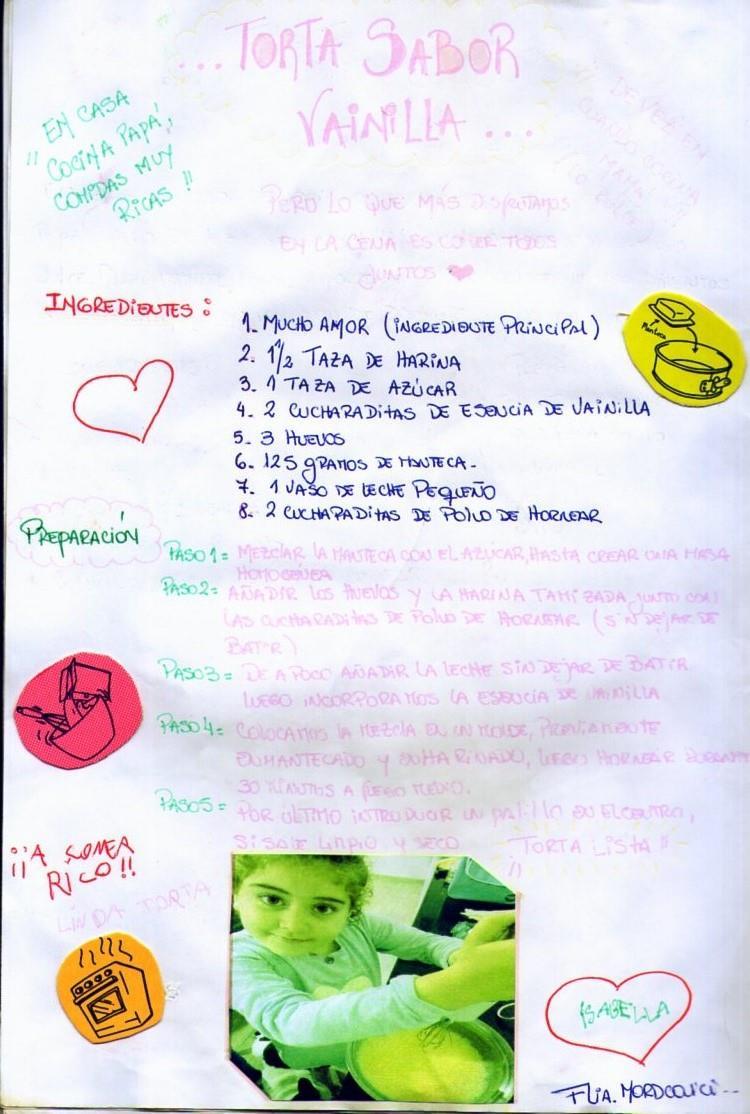 ...TORTA SABOR
VAINILLA...
EN CASA
¡¡ COCINA PAPÁ,
COMIDAS MUY
RICAS !!
CUANDO COCINA
MAMÁ
PERO LO QUE MÁS DISFRUTAMOS
EN LA CENA ES COMER TODOS
JUNTOS ❤
INGREDIENTES:
1. MUCHO AMOR (INGREDIENTE PRINCIPAL)
2. 1 1/2 TAZA DE HARINA
3. 1 TAZA DE AZÚCAR
4. 2 CUCHARADITAS DE ESENCIA DE VAINILLA
5. 3 HUEVOS
6. 125 GRAMOS DE MANTECA.
7. 1 VASO DE LECHE PEQUEÑO
8. 2 CUCHARADITAS DE POLVO DE HORNEAR
Manteca
PREPARACIÓN
PASO 1= MEZCLAR LA MANTECA CON EL AZUCAR, HASTA CREAR UNA MASA
HOMOGÉNEA
PASO 2= AÑADIR LOS HUEVOS Y LA HARINA TAMIZADA, JUNTO CON
LAS CUCHARADITAS DE POLVO DE HORNEAR (SIN DEJAR DE
BATIR)
PASO 3= DE A POCO AÑADIR LA LECHE SIN DEJAR DE BATIR
LUEGO INCORPORAMOS LA ESENCIA DE VAINILLA
PASO 4= COLOCAMOS LA MEZCLA EN UN MOLDE, PREVIAMENTE
ENMANTECADO Y ENHARINADO, LUEGO HORNEAR DURANTE
30 MINUTOS A FUEGO MEDIO.
PASO 5= POR ÚLTIMO INTRODUCIR UN PALILLO EN EL CENTRO,
SI SALE LIMPIO Y SECO
¡¡ TORTA LISTA !!
¡¡A COMER
RICO!!
LINDA TORTA
ISABELLA
FLIA. MORDCOVICI--